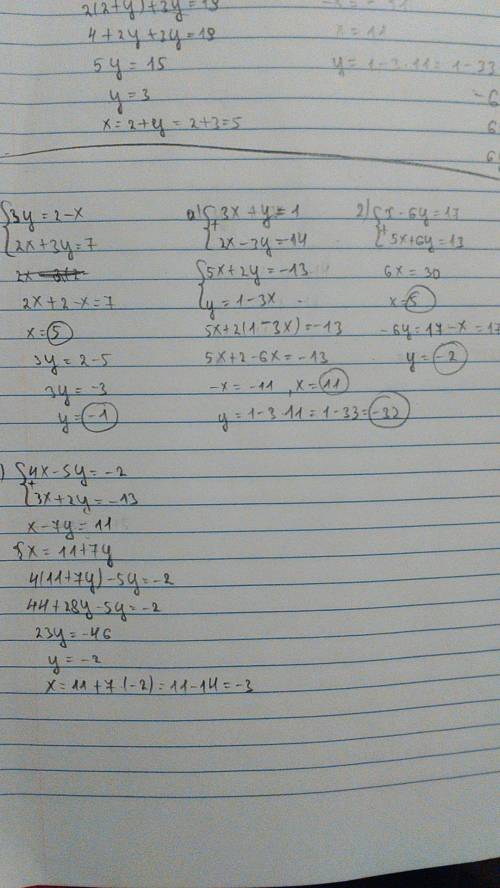 2(2+y)+3y=19
4+2y+3y=19
5y=15
y=3
x=2+y=2+3=5
x=11
y=1-3·11=1-33
3y=2-x
2x+3y=7
2x+2-x=7
x=5
3y=2-5
3y=-3
y=-1
a) 3x+y=1
+
2x-3y=14
5x+2y=-13
y=1-3x
5x+2(1-3x)=-13
5x+2-6x=-13
-x=-11, x=11
y=1-3·11=1-33=-32
2) x-6y=17
+
5x+6y=13
6x=30
x=5
-6y=17-x=17
y=-2
) 4x-5y=-2
+
3x+2y=-13
x-7y=11
x=11+7y
4(11+7y)-5y=-2
44+28y-5y=-2
23y=-46
y=-2
x=11+7·(-2)=11-14=-3